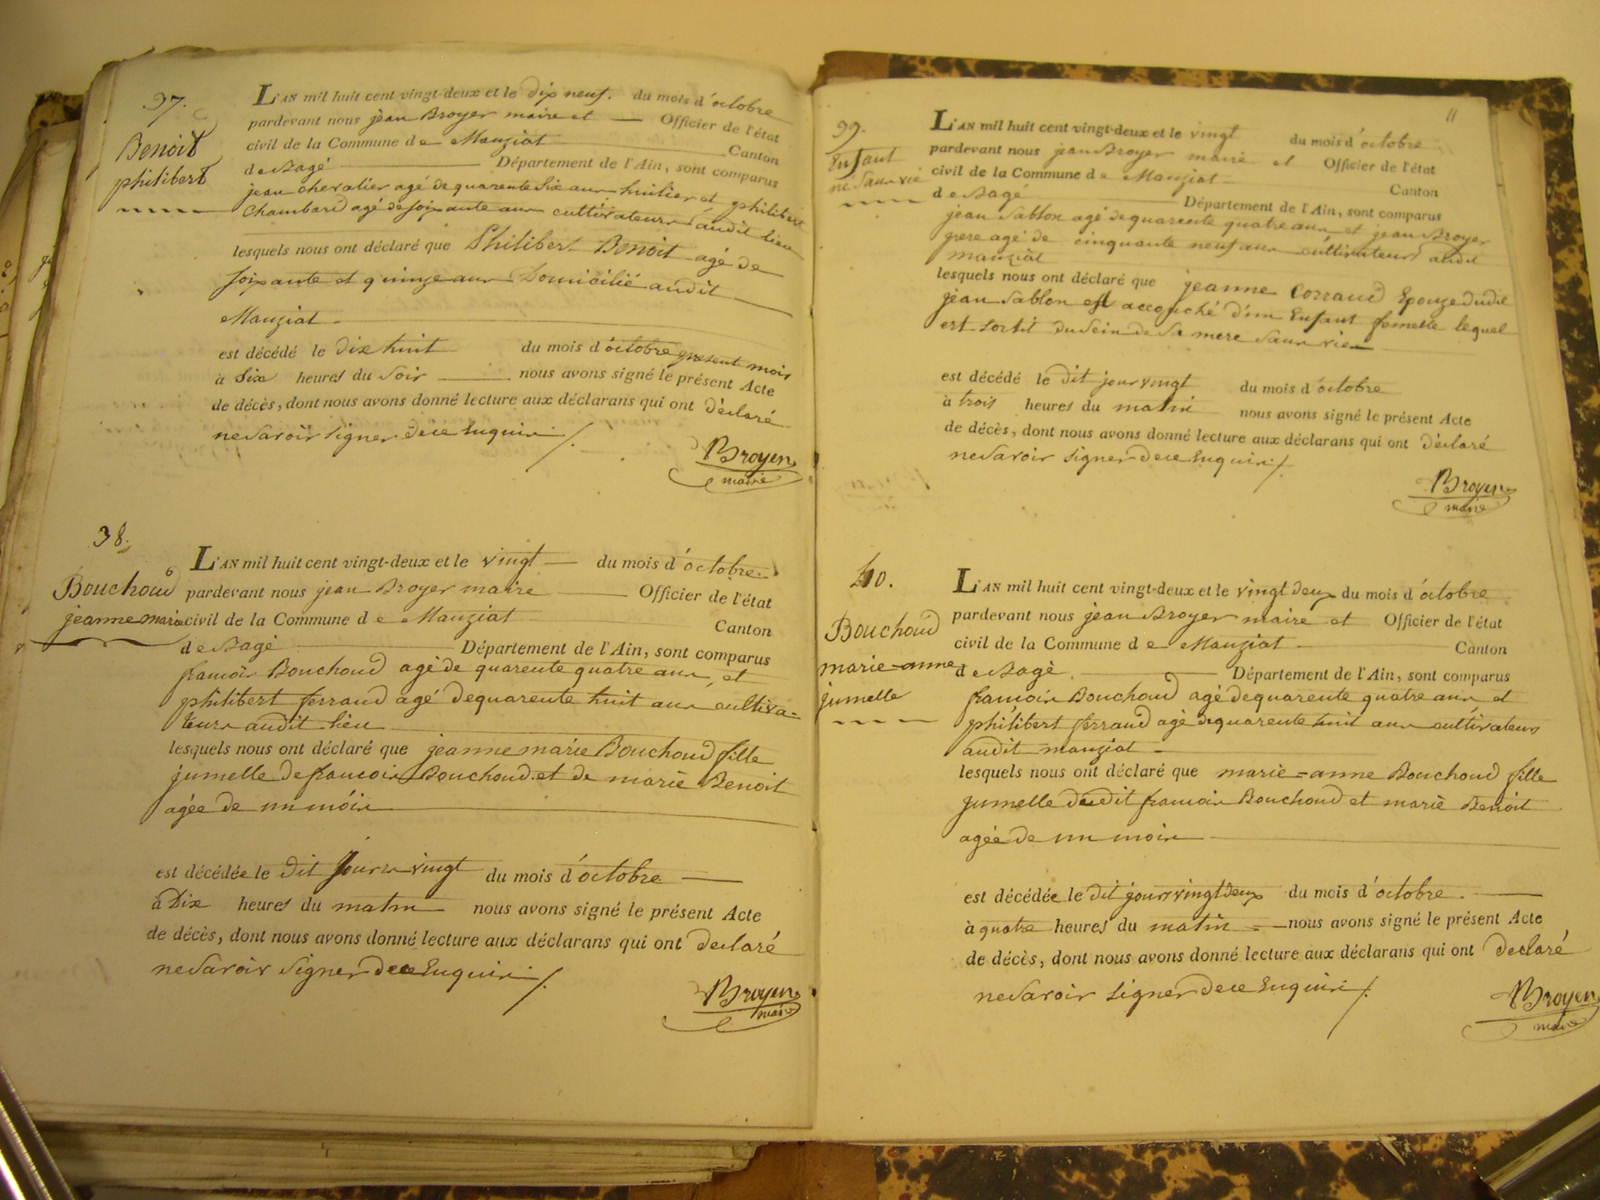 37.
Benoit
philibert
L'AN mil huit cent vingt-deux et le dix neuf. du mois d'octobre
pardevant nous jean Broyer maire et Officier de l'état
civil de la Commune de Manziat Canton
de Bagé Département de l'Ain, sont comparus
jean chevalier agé de quarente six ans huilier et philibert
Chambard agé de soixante ans cultivateurs audit lieu
lesquels nous ont déclaré que Philibert Benoit agé de
soixante et quinze ans Domicilié audit
Manziat
est décédé le dix huit du mois d'octobre present mois
à Six heures du Soir nous avons signé le présent Acte
de décès, dont nous avons donné lecture aux déclarans qui ont déclaré
ne Savoir Signer de ce Enquis ./.
Broyer
maire
38.
Bouchoud
jeanne marie
L'AN mil huit cent vingt-deux et le vingt du mois d'octobre.
pardevant nous jean Broyer maire Officier de l'état
civil de la Commune de Manziat Canton
de Bagé Département de l'Ain, sont comparus
francois Bouchoud agé de quarente quatre ans, et
philibert ferraud agé de quarente huit ans cultiva=
teurs audit lieu
lesquels nous ont déclaré que jeanne marie Bouchoud fille
jumelle de francois Bouchoud et de marie Benoit
agée de un mois
est décédée le dit jour vingt du mois d'octobre
à Dix heures du matin nous avons signé le présent Acte
de décès, dont nous avons donné lecture aux déclarans qui ont déclaré
ne Savoir Signer de ce Enquis ./.
Broyer
maire
11
39.
Enfant
né Sans vie
L'AN mil huit cent vingt-deux et le vingt du mois d'octobre
pardevant nous jean Broyer maire et Officier de l'état
civil de la Commune de Manziat Canton
de Bagé Département de l'Ain, sont comparus
jean Sablon agé de quarente quatre ans et jean Broyer
pere agé de cinquante neuf ans cultivateurs audit
manziat
lesquels nous ont déclaré que jeanne Corraud Epouze dudit
jean Sablon est accouché d'un Enfant femelle lequel
est Sortit du Sein de Sa mere Sans vie
est décédé le dit jour vingt du mois d'octobre
à trois heures du matin nous avons signé le présent Acte
de décès, dont nous avons donné lecture aux déclarans qui ont déclaré
ne Savoir Signer de ce Enquis ./.
Broyer
maire
40.
Bouchoud
marie=anne
jumelle
L'AN mil huit cent vingt-deux et le vingt deux du mois d'octobre
pardevant nous jean Broyer maire et Officier de l'état
civil de la Commune de Manziat Canton
de Bagé Département de l'Ain, sont comparus
francois Bouchoud agé de quarente quatre ans et
philibert ferraud agé de quarente huit ans cultivateurs
audit manziat
lesquels nous ont déclaré que marie=anne Bouchoud fille
jumelle dudit francois Bouchoud et marie Benoit
agée de un mois
est décédée le dit jour vingt deux du mois d'octobre.
à quatre heures du matin nous avons signé le présent Acte
de décès, dont nous avons donné lecture aux déclarans qui ont déclaré
ne Savoir Signer de ce Enquis ./.
Broyer
maire